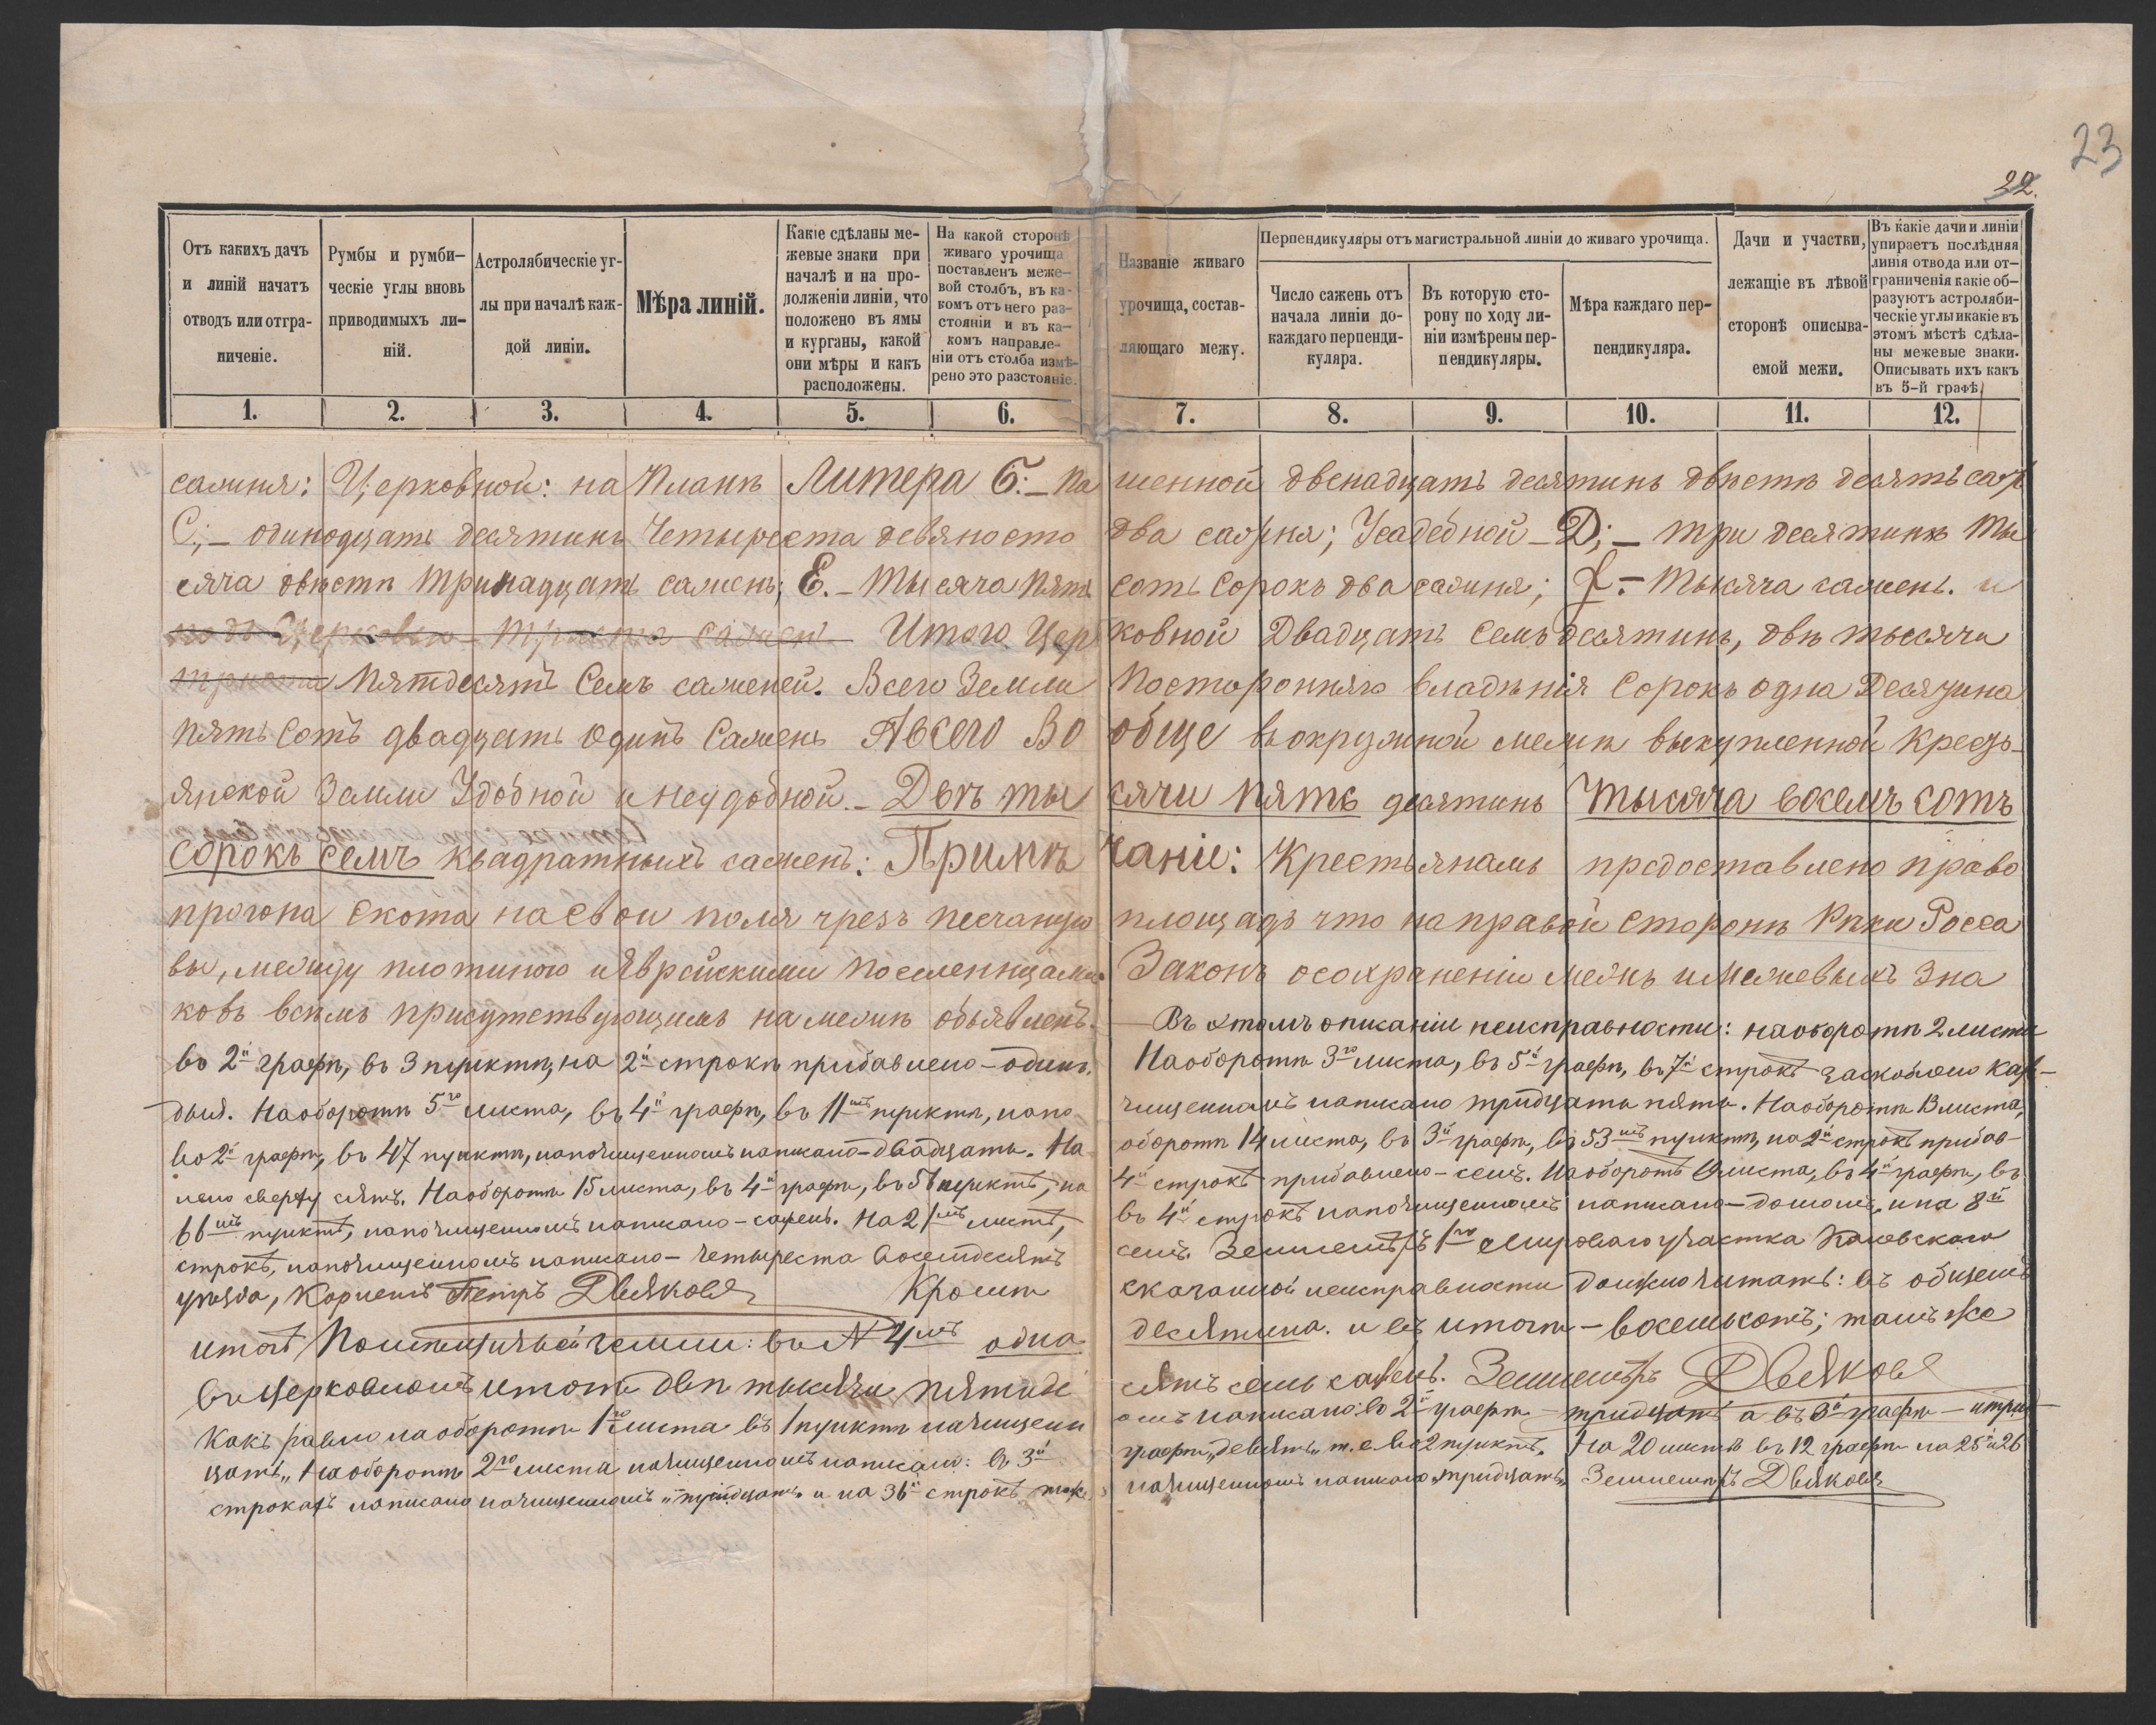 23
22.
Отъ какихъ дачъ и линій начатъ отводъ или отграниченіе.
Румбы и румбическіе углы вновь приводимыхъ линій.
Астролябическіе углы при началѣ каждой линіи.
Мѣра линій.
Какіе сдѣланы межевые знаки при началѣ и на продолженіи линіи, что положено въ ямы и курганы, какой они мѣры и какъ расположены.
На какой сторонѣ живаго урочища поставленъ межевой столбъ, въ какомъ отъ него разстояніи и въ какомъ направленіи отъ столба измѣрено это разстояніе.
Названіе живаго урочища, составляющаго межу.
Перпендикуляры отъ магистральной линіи до живаго урочища.
Число сажень отъ начала линіи до каждаго перпендикуляра.
Въ которую сторону по ходу линіи измѣрены перпендикуляры.
Мѣра каждаго перпендикуляра.
Дачи и участки, лежащіе въ лѣвой сторонѣ описываемой межи.
Въ какіе дачи и линіи упираетъ послѣдняя линія отвода или отграниченія какіе образуютъ астролябическіе углы и какіе въ этомъ мѣстѣ сдѣланы межевые знаки. Описывать ихъ какъ въ 5-й графѣ.
1. 2. 3. 4. 5. 6. 7. 8. 9. 10. 11. 12.
сажня: Церковной: на Планѣ Литера Б:– пашенной двенадцать десятинъ двѣсти десять саж
С;– одинодцать десятинъ Четыреста девяносто два сажня; Усадебной – D;– три десятинъ ты
сяча двѣсти тринадцать сажень; Е.– тысяча пять сотъ сорокъ два сажня; – тысяча сажень. и
подъ Церковью – триста сажен Итого Церковной Двадцать семь десятинъ, двѣ тысячи
триста пятдесятъ Семъ саженей. Всего Земли Посторонняго владѣнія Сорокъ одна Десятина
пять сотъ двадцать одинъ Сажень А всего Во обще въ окружной межѣ выкупленной Кресть–
янской Земли Удобной и неудобной.– Двѣ тысячи пять десятинъ тысяча восемъ сотъ
сорокъ семъ квадратныхъ сажень: Примѣчаніе: Крестьянамъ предоставлено право
прогона скота на свои поля чрезъ песчаную площадь что на правой сторонѣ Рѣки Росса
вы, между плотиною и Яврейскими поселенцами. Законъ о сохраненіи межъ и межевыхъ Зна
ковъ всѣмъ присутствующимъ на межѣ объявленъ. – Въ этомъ описаніи неисправности: на оборотѣ 2 листа
во 2й графѣ, въ 3 пунктѣ, на 2й строкѣ прибавлено – одинъ. На оборотѣ 3го листа, въ 5й графѣ, въ 7й строкѣ заскоблено каж–
дыя. На оборотѣ 5го листа, въ 4й графѣ, въ 11мъ пунктѣ, напочищенномъ написано тридцать пять. На оборотѣ 13 листа,
во 2й графѣ, въ 47 пунктѣ, напочищенномъ написано – двадцать. На оборотѣ 14 листа, въ 3й графѣ, въ 53мъ пунктѣ, на 2й строкѣ прибав–
лено сверху сятъ. На оборотѣ 15 листа, въ 4й графѣ, въ пунктѣ, на 4й строкѣ прибавлено – семь. На оборотѣ листа, въ 4й графѣ, въ
66мъ пунктѣ, напочищенномъ написано – сажень. На 21мъ листѣ, въ 4й строкѣ напочищенномъ написано – и на 8й
строкѣ, напочищенномъ написано – четыреста восемдесятъ семь. Землемѣръ 1го Мироваго участка Каневскаго
уѣзда, Корнетъ Петръ Двяковъ Кромѣ сказанной неисправности должно читать: въ общемъ
итогѣ Помѣщичьей земли: въ N 4мъ одна десятина. и въ итогѣ – восемьсотъ; тамъ же
въ Церковномъ итогѣ двѣ тысячи пятьдесятъ семь сажень. Землемѣръ Двяковъ
Какъ равно на оборотѣ 1го листа въ 1 пунктѣ начищенномъ написано: во 2й графѣ – тридцать а въ 3й графѣ – и трид–
цать„ На оборотѣ 2го листа начищенномъ написано: въ 3й графѣ „девять„ т.е. во 2 пунктѣ. На 20 листѣ въ 12 графѣ на 25й и 26
строкахъ написано начищенномъ „тридцать„ и на 36й строкѣ тоже начищенномъ написано „тридцать„ Землемѣръ Двяковъ